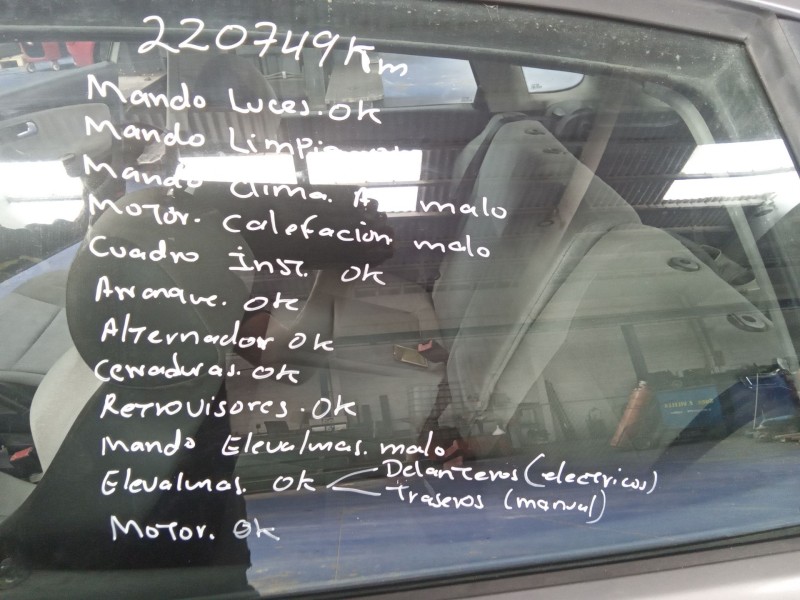 220749 Km
Mando Luces. OK
Mando
Mando Clima. malo
Motor. Calefacion malo
Cuadro Inst. OK
Arranque. OK
Alternador OK
Cerraduras. OK
Retrovisores. OK
Mando Elevalunas. malo
Elevalunas. OK Delanteros (electricos)
Traseros (manual)
Motor. OK